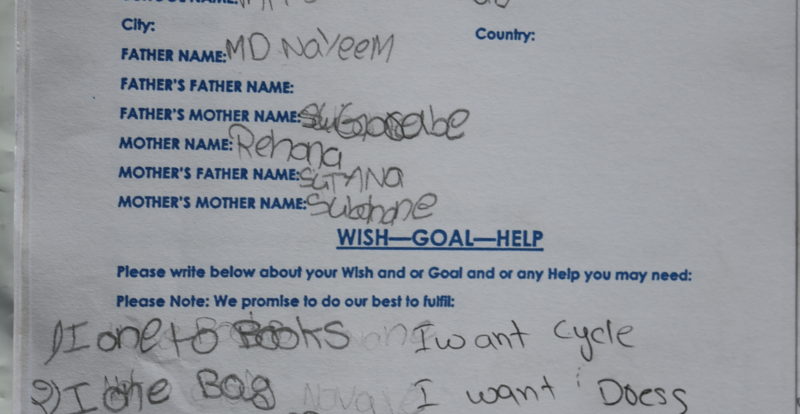 City: Country:
FATHER NAME: MD NaYeeM
FATHER'S FATHER NAME:
FATHER'S MOTHER NAME:
MOTHER NAME: Rehana
MOTHER'S FATHER NAME: SUTANA
MOTHER'S MOTHER NAME:
WISH—GOAL—HELP
Please write below about your Wish and or Goal and or any Help you may need:
Please Note: We promise to do our best to fulfil:
1) I one to Books I want Cycle
2) I one Bag I want Doess